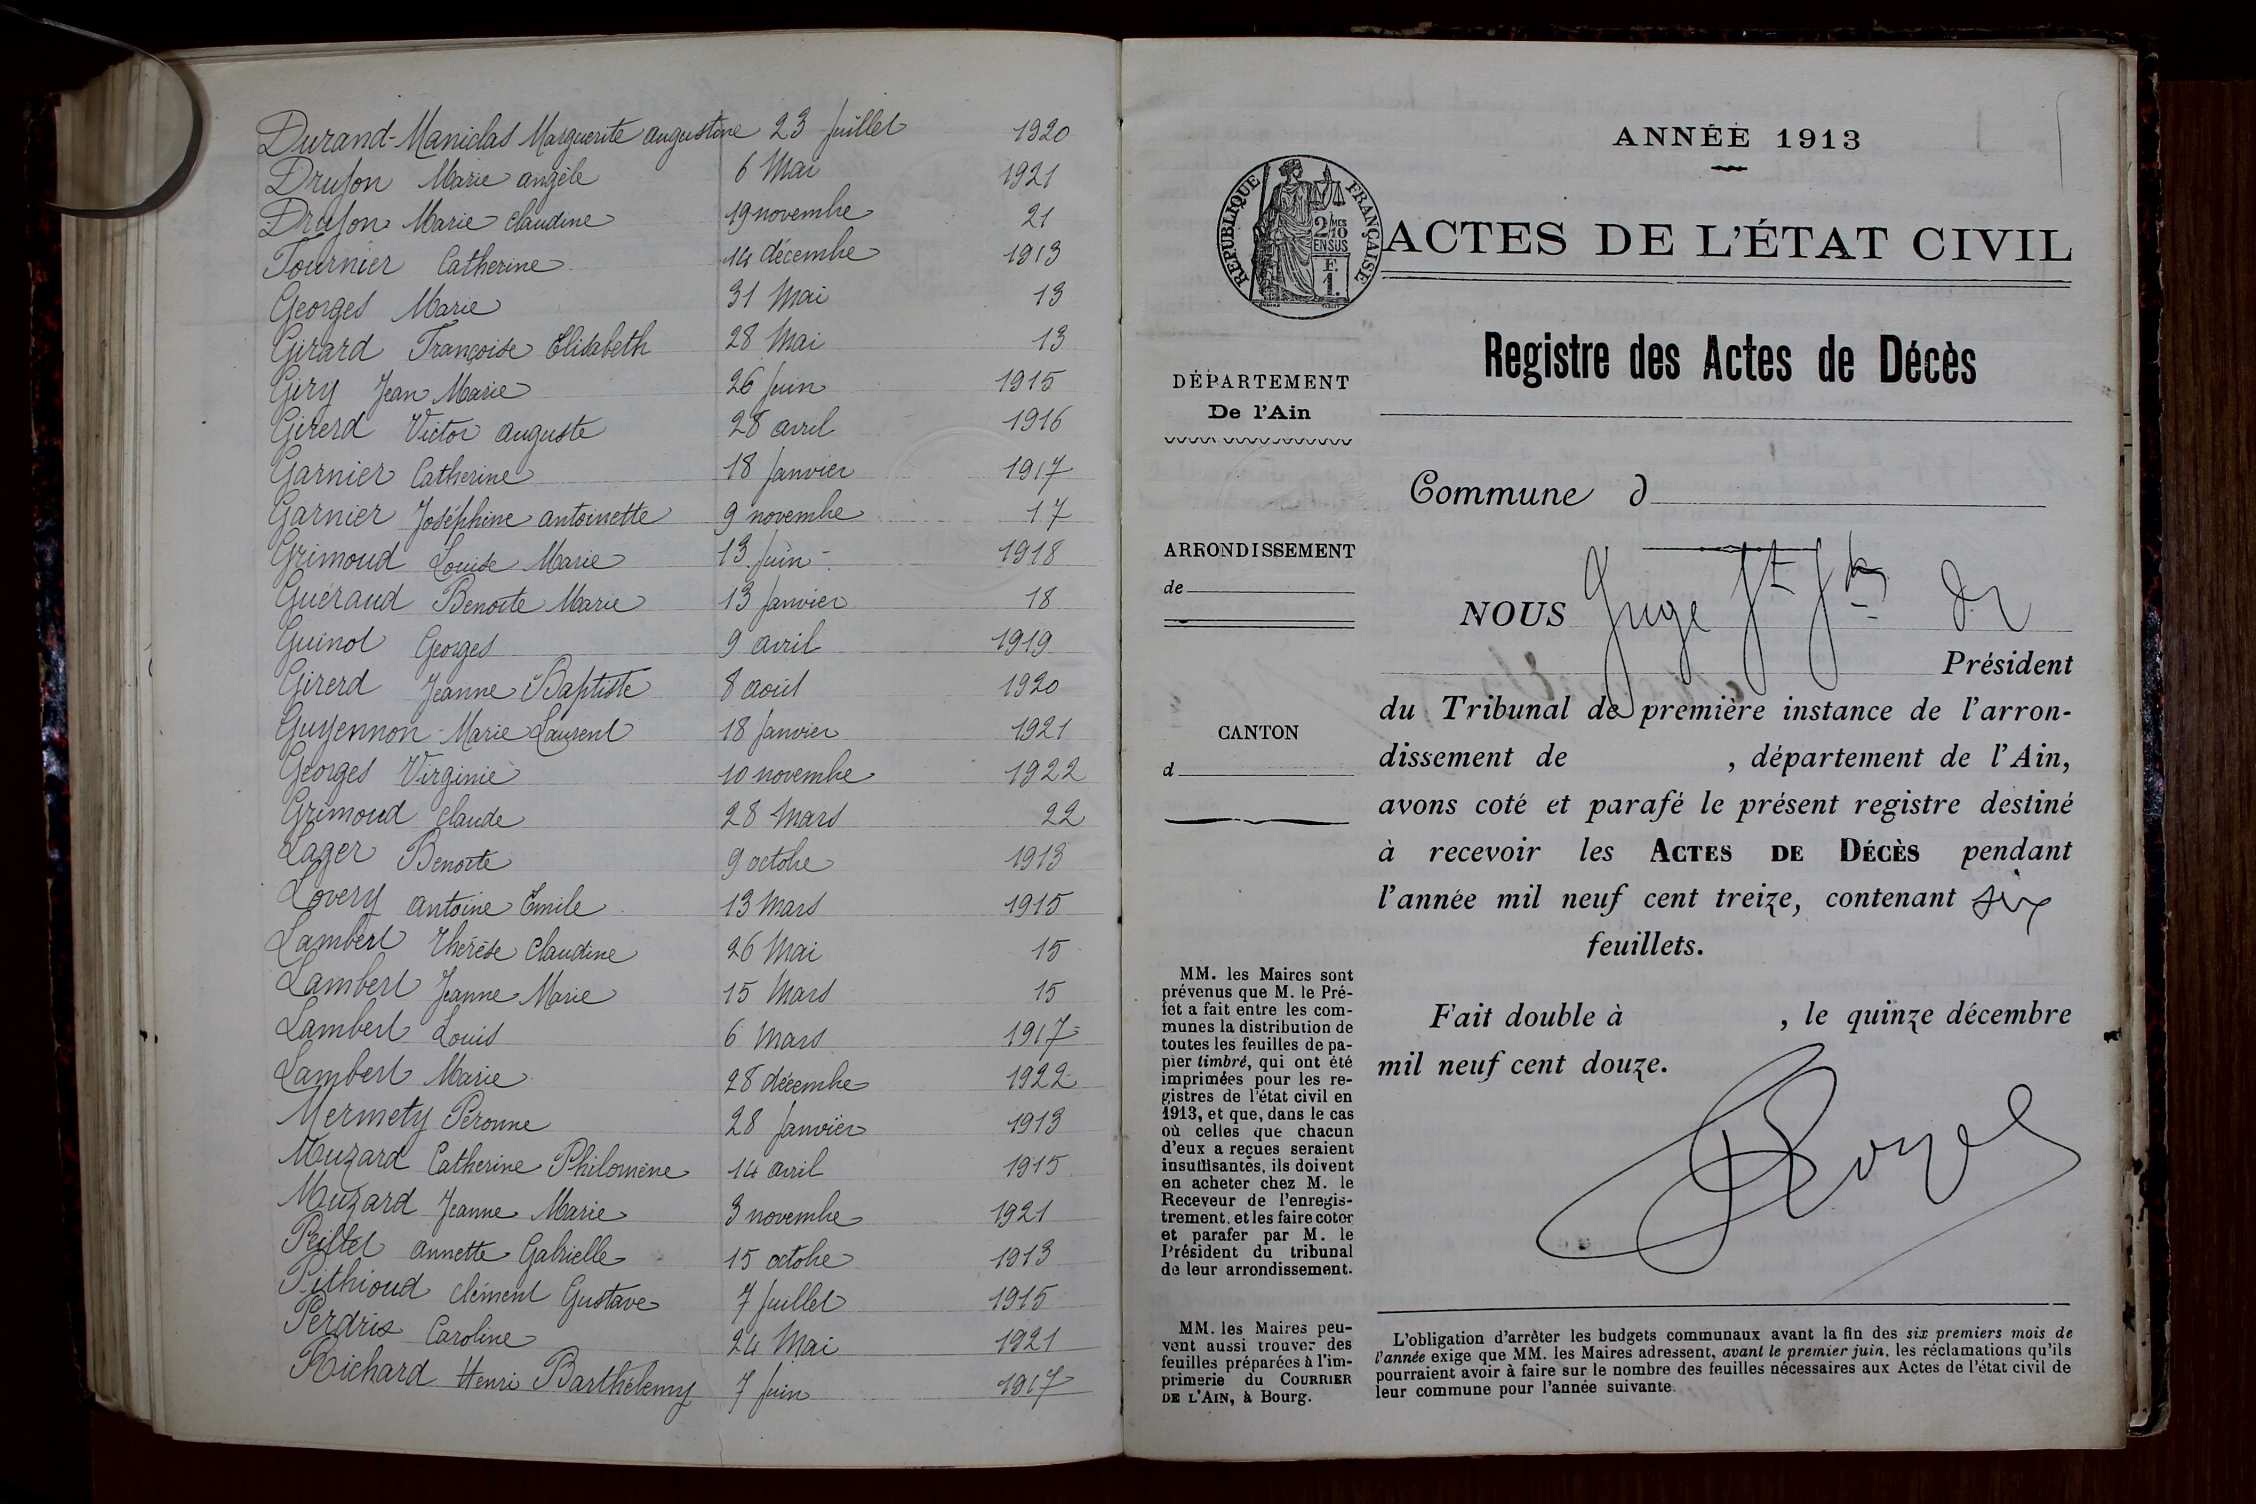 Durand-Maniclas Marguerite augustine 23 Juillet 1920
Drujon Marie angèle 6 Mai 1921
Drujon Marie Claudine 19 novembre 21
Fournier Catherine 14 décembre 1913
Georges Marie 31 Mai 13
Girard Françoise Elisabeth 28 Mai 13
Giry Jean Marie 26 Juin 1915
Girerd Victor auguste 28 avril 1916
Garnier Catherine 18 Janvier 1917
Garnier Joséphine antoinette 9 novembre 17
Grimoud Louise Marie 13 Juin 1918
Guéraud Benoite Marie 13 Janvier 18
Guinot Georges 9 avril 1919
Girerd Jeanne Baptiste 8 août 1920
Guyennon Marie Laurent 18 Janvier 1921
Georges Virginie 10 novembre 1922
Grimoud Claude 28 Mars 22
Lager Benoite 9 octobre 1913
Lovery antoine Emile 13 Mars 1915
Lambert Thérèse Claudine 26 Mai 15
Lambert Jeanne Marie 15 Mars 15
Lambert Louis 6 Mars 1917
Lambert Marie 28 décembre 1922
Mermety Péronne 28 Janvier 1913
Muzard Catherine Philomène 14 avril 1915
Muzard Jeanne Marie 3 novembre 1921
annette Gabrielle 15 octobre 1913
Pithioud Clément Gustave 7 Juillet 1915
Perdrix Caroline 24 Mai 1921
Richard Henri Barthélemy 7 Juin 1917
ANNÉE 1913
RÉPUBLIQUE FRANÇAISE
2/MES
10
EN SUS
F.
1.
ACTES DE L'ÉTAT CIVIL
Registre des Actes de Décès
DÉPARTEMENT
De l'Ain
Commune d
ARRONDISSEMENT
de
NOUS Juge
Président
du Tribunal de première instance de l'arron-
dissement de , département de l'Ain,
avons coté et parafé le présent registre destiné
à recevoir les ACTES DE DÉCÈS pendant
l'année mil neuf cent treize, contenant six
feuillets.
Fait double à , le quinze décembre
mil neuf cent douze.
CANTON
d
MM. les Maires sont
prévenus que M. le Pré-
fet a fait entre les com-
munes la distribution de
toutes les feuilles de pa-
pier timbré, qui ont été
imprimées pour les re-
gistres de l'état civil en
1913, et que, dans le cas
où celles que chacun
d'eux a reçues seraient
insuffisantes, ils doivent
en acheter chez M. le
Receveur de l'enregis-
trement, et les faire coter
et parafer par M. le
Président du tribunal
de leur arrondissement.
MM. les Maires peu-
vent aussi trouver des
feuilles préparées à l'im-
primerie du COURRIER
DE L'AIN, à Bourg.
L'obligation d'arrêter les budgets communaux avant la fin des six premiers mois de
l'année exige que MM. les Maires adressent, avant le premier juin, les réclamations qu'ils
pourraient avoir à faire sur le nombre des feuilles nécessaires aux Actes de l'état civil de
leur commune pour l'année suivante.